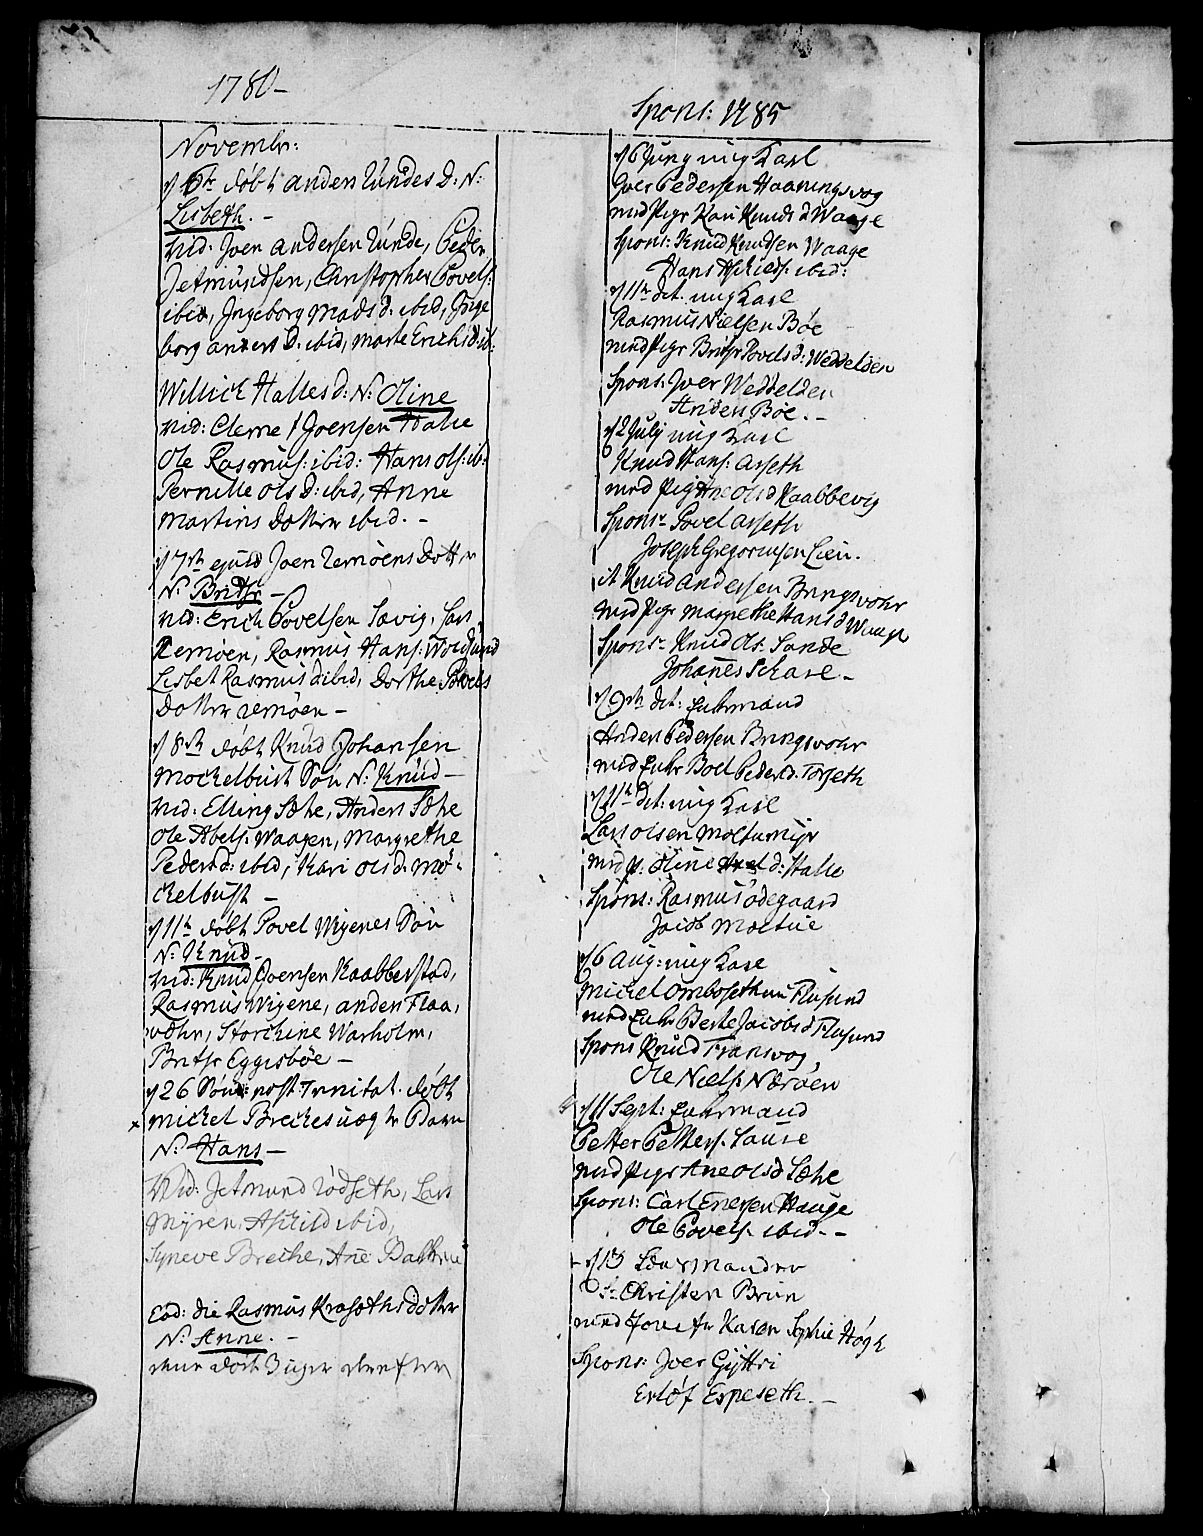 1780-
Novembr:
d 6te døbt anden Rundes D. N:
Lisbeth. -
Vid: Joen andersen Runde, Peder
Jetmundsen, Christopher Povels:
ibid, Ingeborg Mads d. ibid, Inge
borg anders D. ibid, Marte Erichs d ib:
Willich Halles d: N: Oline
Vid: Cleme / Joensen Halle
Ole Rasmus: ibid: Hans ols: ib:
Pernille ols D: ibid, Anne
Martins Datter ibid. -
d 7de ejusd Joen Remøens Dotter
N: Brithe -
Vid: Erich Povelsen Sævig, Lars
Remøen, Rasmus Hans: Voldsund
Lisbet Rasmus d ibid, Dorthe Povels
Datter Remøen -
d 8de døbt Knud Johansen
Mockelbust Søn N: Knud -
Vid: Elling Sæhe, Anders Sæhe
Ole Abels: Waagen, Margrethe
Pedersd: ibid, Kari ols d: Mø-
ckelbust -
d 11te døbt Povel Myenes Søn
N: Knud -
Vid: Knud Joensen Kaabberstad,
Rasmus Myene, anden Flaa,
vohr, Storchine Warholm,
Brithe Eggisbøe -
d 26 Sønd: post: Trinitat. døbt
x Michel Breches Barn
N: Hans -
Vid: Jetmund Rødseth, Lars
Myren, Aschild ibid,
Syneve Breche, Ane
Eod: die Rasmus Krosæths dotter
N: Anne. -
døbt 3 uger
Spons: 1785
d 6 Juny ung Karl
Iver Pedersen Haaningsvog
med Pige Kari Knuds d Waage
Spons: Knud Knudsen Waage
Hans Aschilds: ibid:
d 11te dit. ung Karl
Rasmus Nielsen Bøe
med Pige Brithe Povels d: Weddelden
Spons: Iver Weddelden
Anden Bøe. -
d 2 July ung Karl
Knud Hans: Asseth
med Pig Ane ols d Kaabbevig
Spons: Povel Asseth
Joseph Gregoriusen Lien.
it Knud Andersen Bringsvohr
med Pige Margrethe Hans d Waage
Spons: Knud Ols: Sande
Johannes Schare -
d 9de dit: Enkemand
Anden Pedersen Bringsvohr
med Enke Boel Peders d. Torseth
d 11te dit: ung Karl
Lars olsen Moltumyr
med p. Oline d: Halle
Spons: Rasmus ødegaard
Jacob Moltue
d 6 Aug: ung Karl
Michel Ombosethun Flusund
med Enke Berte Jacobs d Flusund
Spons Knud Fransvog
Ole Niels: Nærøen
d 11 Sept: Enkemand
Petter Petters: Sause
med Pige Ane ols d Sæhe
Spons: Carl Enersen Hauge
Ole Povels: ibid. -
- d 13
S: Christen Brun
med Karen Sophie Høgh
Spons: Iver Gjøttri
Erlof Espeseth. -